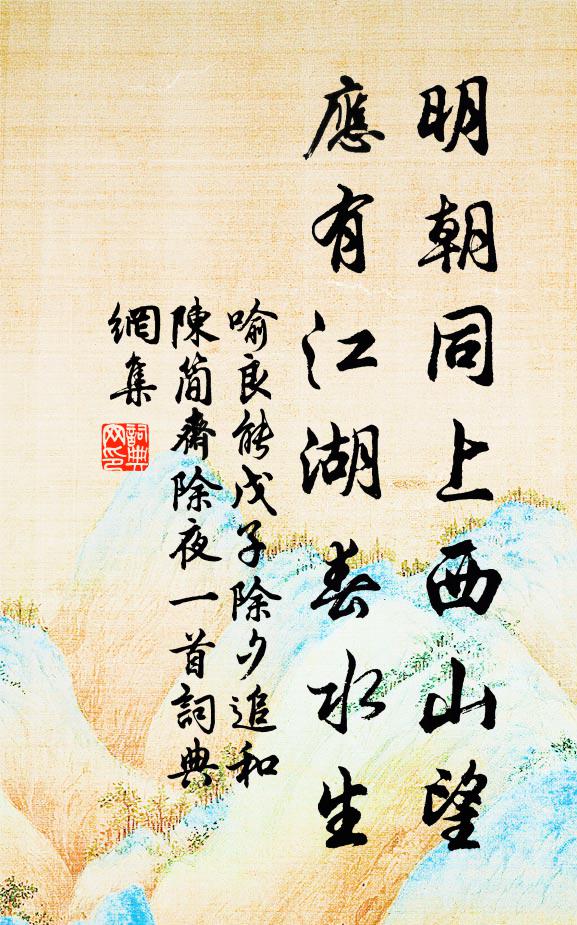 明朝同上西山望
應有江湖春水生
喻良能戊子除夕追和
陳简齋除夜一首詞典
網集
詞典網印